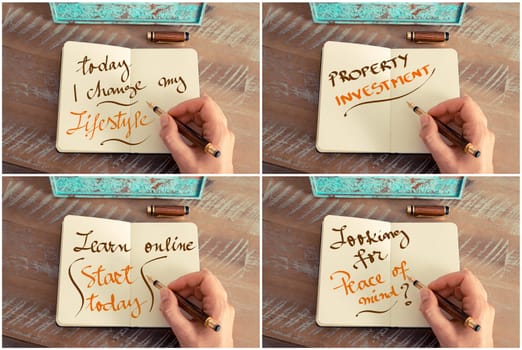 today
I change my
Lifestyle
PROPERTY
INVESTMENT
Learn online
Start
today
Looking
for
Peace of
mind?